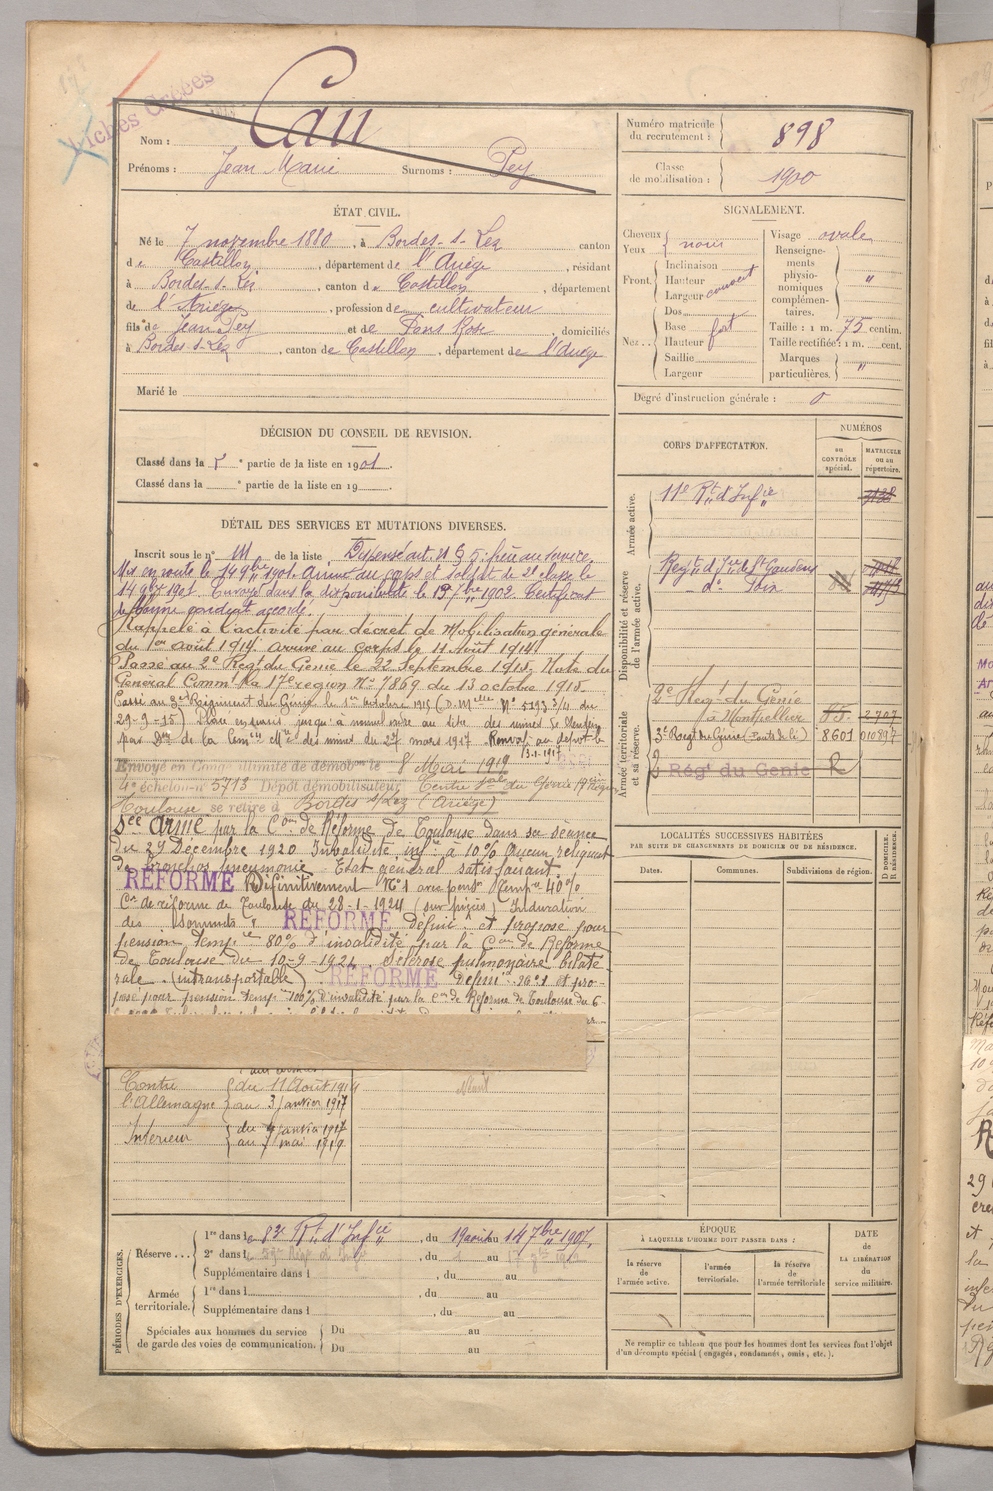 Fiches Créées
Nom : Cau
Prénoms : Jean Marie Surnoms : Pey
Numéro matricule du recrutement : 898
Classe de mobilisation : 1900
ÉTAT CIVIL.
Né le 7 novembre 1880, à Bordes-s-Lez canton
de Castillon, département de l'Ariège, résidant
à Bordes-s-Lez, canton de Castillon, département
de l'Ariège, profession de cultivateur
fils de Jean Pey et de Pons Rose, domiciliés
à Bordes-s-Lez, canton de Castillon, département de l'Ariège
Marié le
SIGNALEMENT.
Cheveux
Yeux noirs
Front. Inclinaison
Hauteur
Largeur couvert
Nez.. Dos
Base fort
Hauteur
Saillie
Largeur
Visage ovale
Renseignements physionomiques complémentaires. "
Taille : 1 m. 75 centim.
Taille rectifiée : 1 m. cent.
Marques particulières. "
Degré d'instruction générale : 0
DÉCISION DU CONSEIL DE REVISION.
Classé dans la 5e partie de la liste en 1901.
Classé dans la e partie de la liste en 19
DÉTAIL DES SERVICES ET MUTATIONS DIVERSES.
Inscrit sous le n° 111 de la liste Dispensé art. 21 § 5 : frère au service.
Mis en route le 14 9bre 1901. Arrivé au corps et soldat de 2e classe le
14 9bre 1901. Envoyé dans la disponibilité le 19 7bre 1902. Certificat
de bonne conduite accordé.
Rappelé à l'activité par décret de Mobilisation générale
du 1er août 1914. arrivé au corps le 11 Août 1914
Passé au 2e Regt du Génie le 22 Septembre 1915, Note du
Général Commt la 17e région No 7869 du 13 octobre 1915.
Passé au 2e Régiment du Génie le 1er octobre 1915 (D. Mlle No 5193 3/4 du
29-9-15) Placé en sursis jusqu'à nouvel ordre au titre des mines de Sentein
par Don de la Comon Mre des mines du 27 mars 1917 Renvoi au dépôt le
13-1-1917
Envoyé en Congé illimité de démobon le 8 Mai 1919
4e échelon no 5713 Dépôt démobilisateur Centre Sal du Génie 17e Région
Toulouse se retire à Bordes s/Lez (Ariège)
Sce Armé par la Con de Réforme de Toulouse dans sa séance
du 29 Décembre 1920 Invalidité infre à 10% Aucun reliquat
de broncho pneumonie - Etat général satisfaisant.
RÉFORMÉ Définitivement No 1 avec pension Tempre 40%
Con de réforme de Toulouse du 28-1-1924 (sur pièces) Induration
des sommets " RÉFORMÉ définif et proposé pour
pension tempre 80% d'invalidité par la Con de Réforme
de Toulouse du 10-9-1924. Sclérose pulmonaire bilaté-
rale. (intransportable) RÉFORMÉ Définif No 1 et pro-
posé pour pension tempre 100% d'invalidité par la Con de Réforme de Toulouse du 6-
Contre l'Allemagne du 11 Août 1914
au 3 Janvier 1917
Intérieur du 4 Janvier 1917
au 7 mai 1919
Néant
CORPS D'AFFECTATION.
NUMÉROS
au CONTRÔLE spécial.
MATRICULE ou au répertoire.
Armée active.
11e Rt d'Infie
Disponibilité et réserve de l'armée active.
Regt d'Infie de St Gaudens
- do Foix
Armée territoriale et sa réserve.
2e Regt du Génie
à Montpellier 2707
2e Regt du Génie (Ponts de Cé) 8601 010897
2 Régt du Génie R
LOCALITÉS SUCCESSIVES HABITÉES
PAR SUITE DE CHANGEMENTS DE DOMICILE OU DE RÉSIDENCE.
Dates. Communes. Subdivisions de région. D DOMICILE. R RÉSIDENCE.
PÉRIODES D'EXERCICES.
Réserve ... 1re dans le 83e Rt d'Infie, du 19 août au 14 7bre 1907.
2e dans le, du 1 au 17 9bre
Supplémentaire dans l, du au
Armée territoriale. 1re dans l, du au
Supplémentaire dans l, du au
Spéciales aux hommes du service de garde des voies de communication. Du au
Du au
ÉPOQUE
À LAQUELLE L'HOMME DOIT PASSER DANS :
la réserve de l'armée active.
l'armée territoriale.
la réserve de l'armée territoriale
DATE de LA LIBÉRATION du service militaire.
Ne remplir ce tableau que pour les hommes dont les services font l'objet
d'un décompte spécial (engagés, condamnés, omis, etc.).